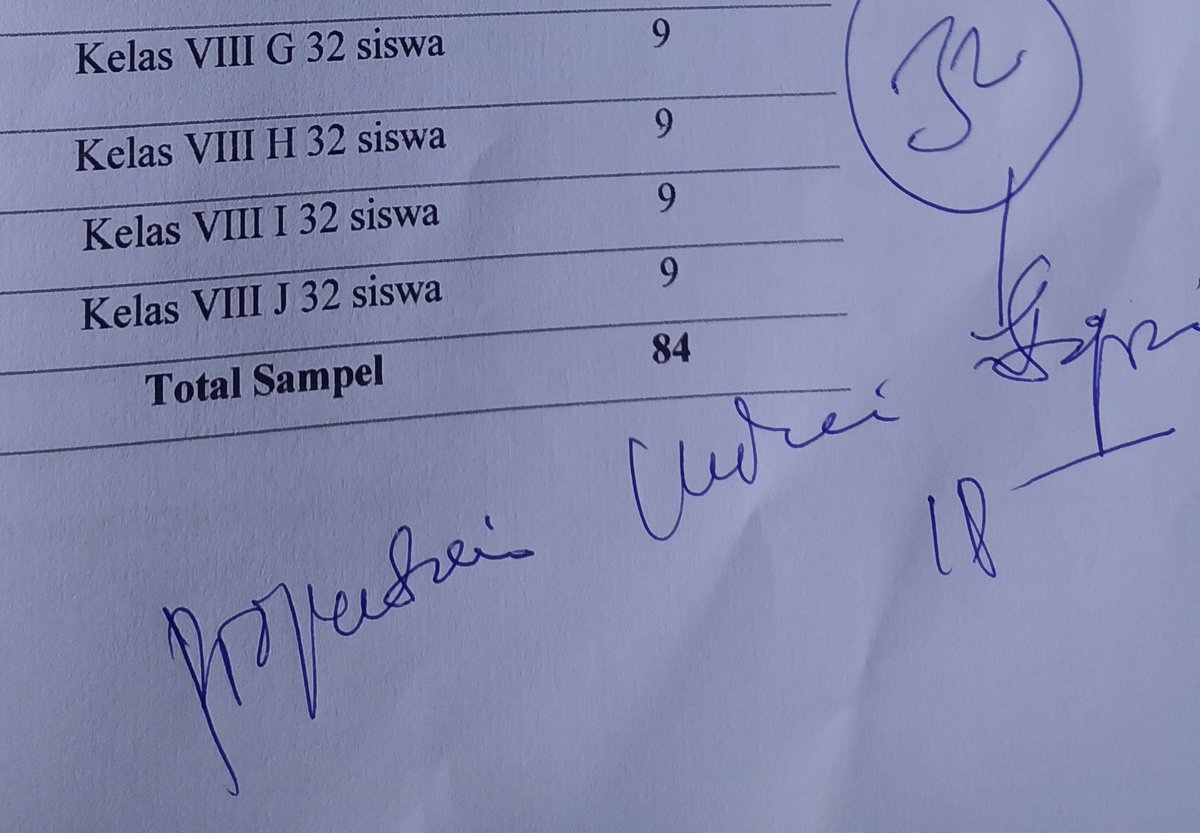 Kelas VIII G 32 siswa 9
32
Kelas VIII H 32 siswa 9
Kelas VIII I 32 siswa 9
Kelas VIII J 32 siswa 9
Total Sampel 84
18